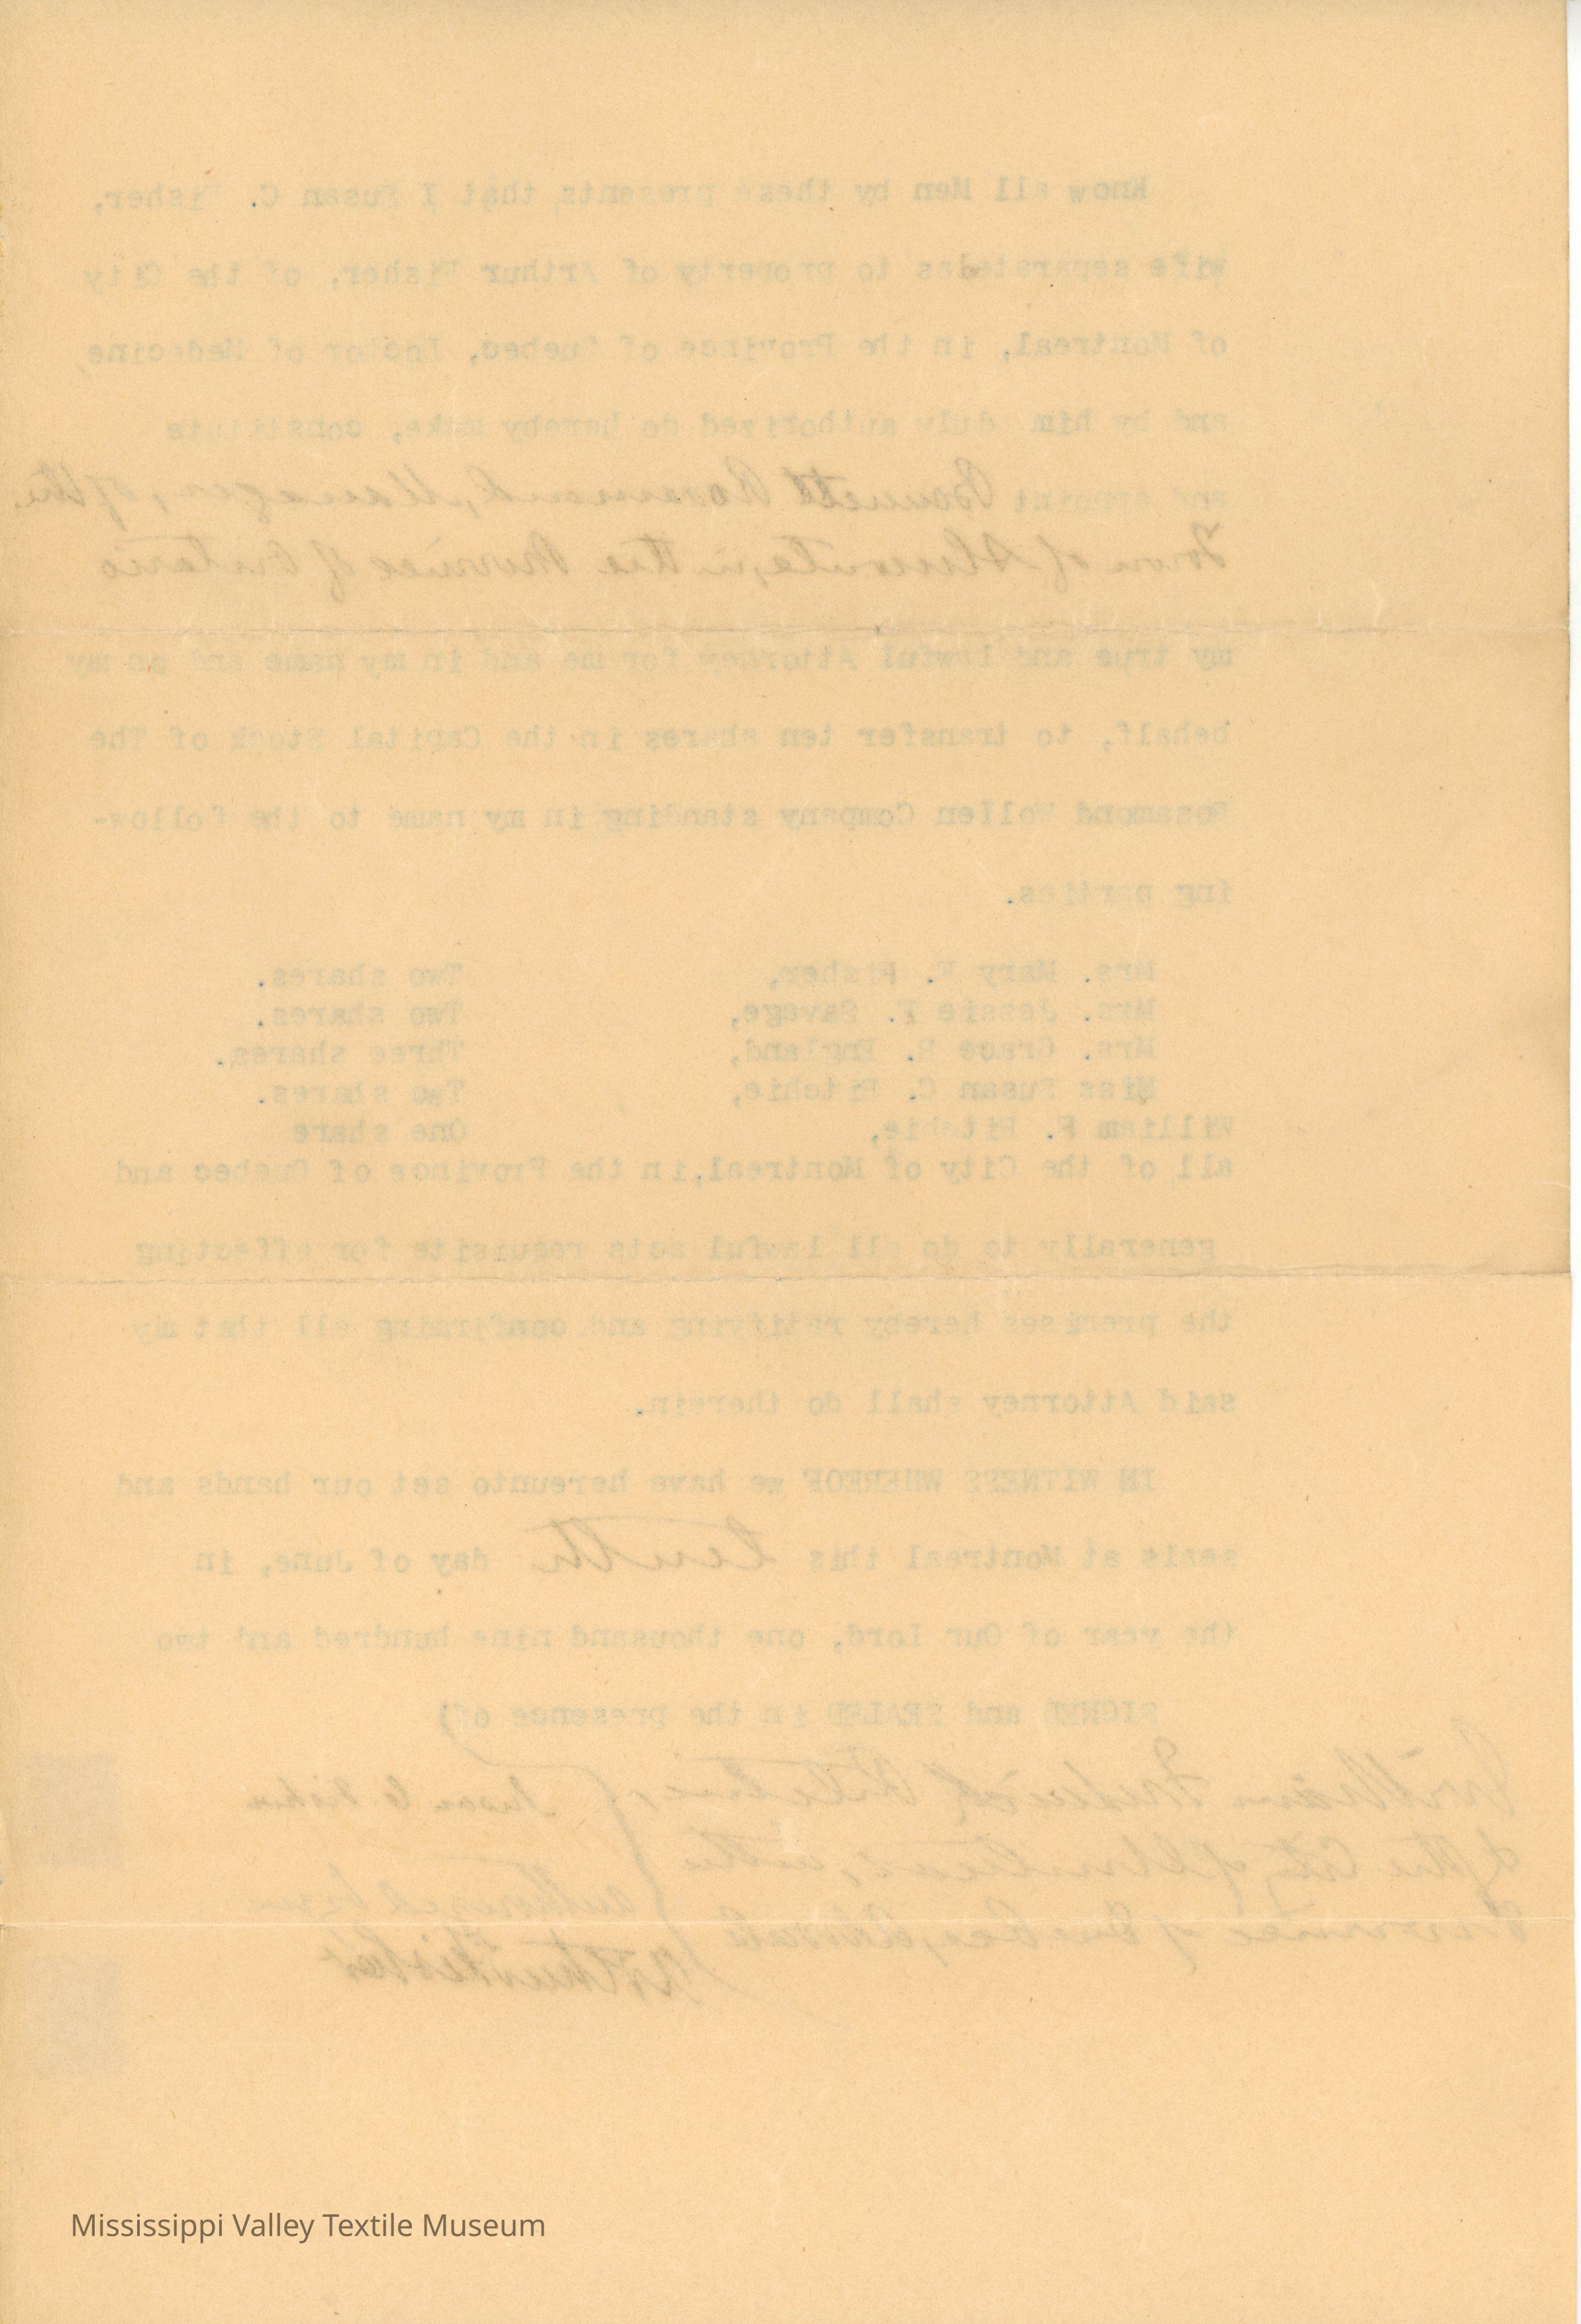 Know all Men by these presents that I Susan C. Fisher,
wife separated as to property of Arthur Fisher, of the City
of Montreal, in the Province of Quebec, Doctor of Medecine,
and by him duly authorized do hereby make, constitute
and appoint Bennett Rosamond, Manager, of the
Town of Almonte, in the Province of Ontario
my true and lawful Attorney for me and in my name and on my
behalf, to transfer ten shares in the Capital Stock of The
Rosamond Wollen Company standing in my name to the follow-
ing parties.
Mrs. Mary F. Fisher, Two shares.
Mrs. Jessie F. Savage, Two shares.
Mrs. Grace R. England, Three shares.
Miss Susan C. Ritchie, Two shares.
William F. Ritchie, One share
all of the City of Montreal, in the Province of Quebec and
generally to do all lawful acts requisite for effecting
the premises hereby ratifying and confirming all that my
said Attorney shall do therein.
IN WITNESS WHEREOF we have hereunto set our hands and
seals at Montreal this tenth day of June, in
the year of Our Lord, one thousand nine hundred and two
SIGNED and SEALED in the presence of)
William Frederick Ritchie, Susan C. Fisher
of the City of Montreal, in the
authorized by me
Province of Quebec, Advocate
Arthur Fisher
Mississippi Valley Textile Museum